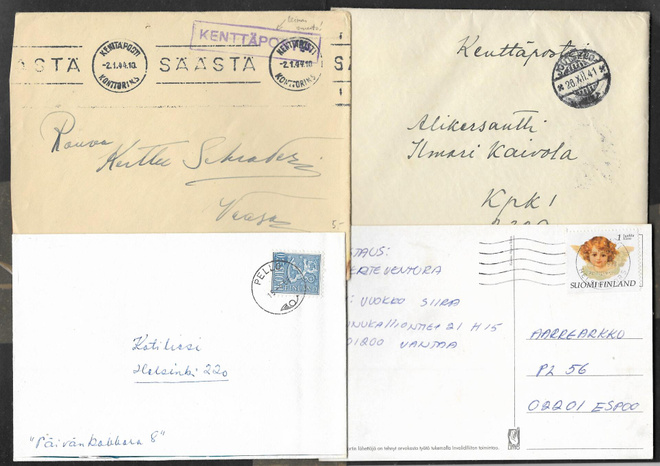 KENTTÄPOSTI
KENTTÄPOSTI
-2.1.44.10
KONTTORI KS
SÄÄSTÄ
KENTTÄPOSTI
-2.1.44.10
KONTTORI KS
Rouva
Kerttu
Vaasa
5-
Kenttäpostia
28.XII.41
Alikersantti
Ilmari Kaivola
Kpk 1
PELLO
SUOMI
FINLAND
Kotiliesi
Helsinki 220
"Päivänkakkara 8"
STAUS:
ERTEVENTURA
: VUOKKO SIIRA
NUKALLIONTIE 21 H 15
01200 VANTAA
1
SUOMI FINLAND
AARREARKKU
PL 56
02201 ESPOO
kortin lähettäjä on tehnyt arvokasta työtä tukemalla Invalidiliiton toimintaa.